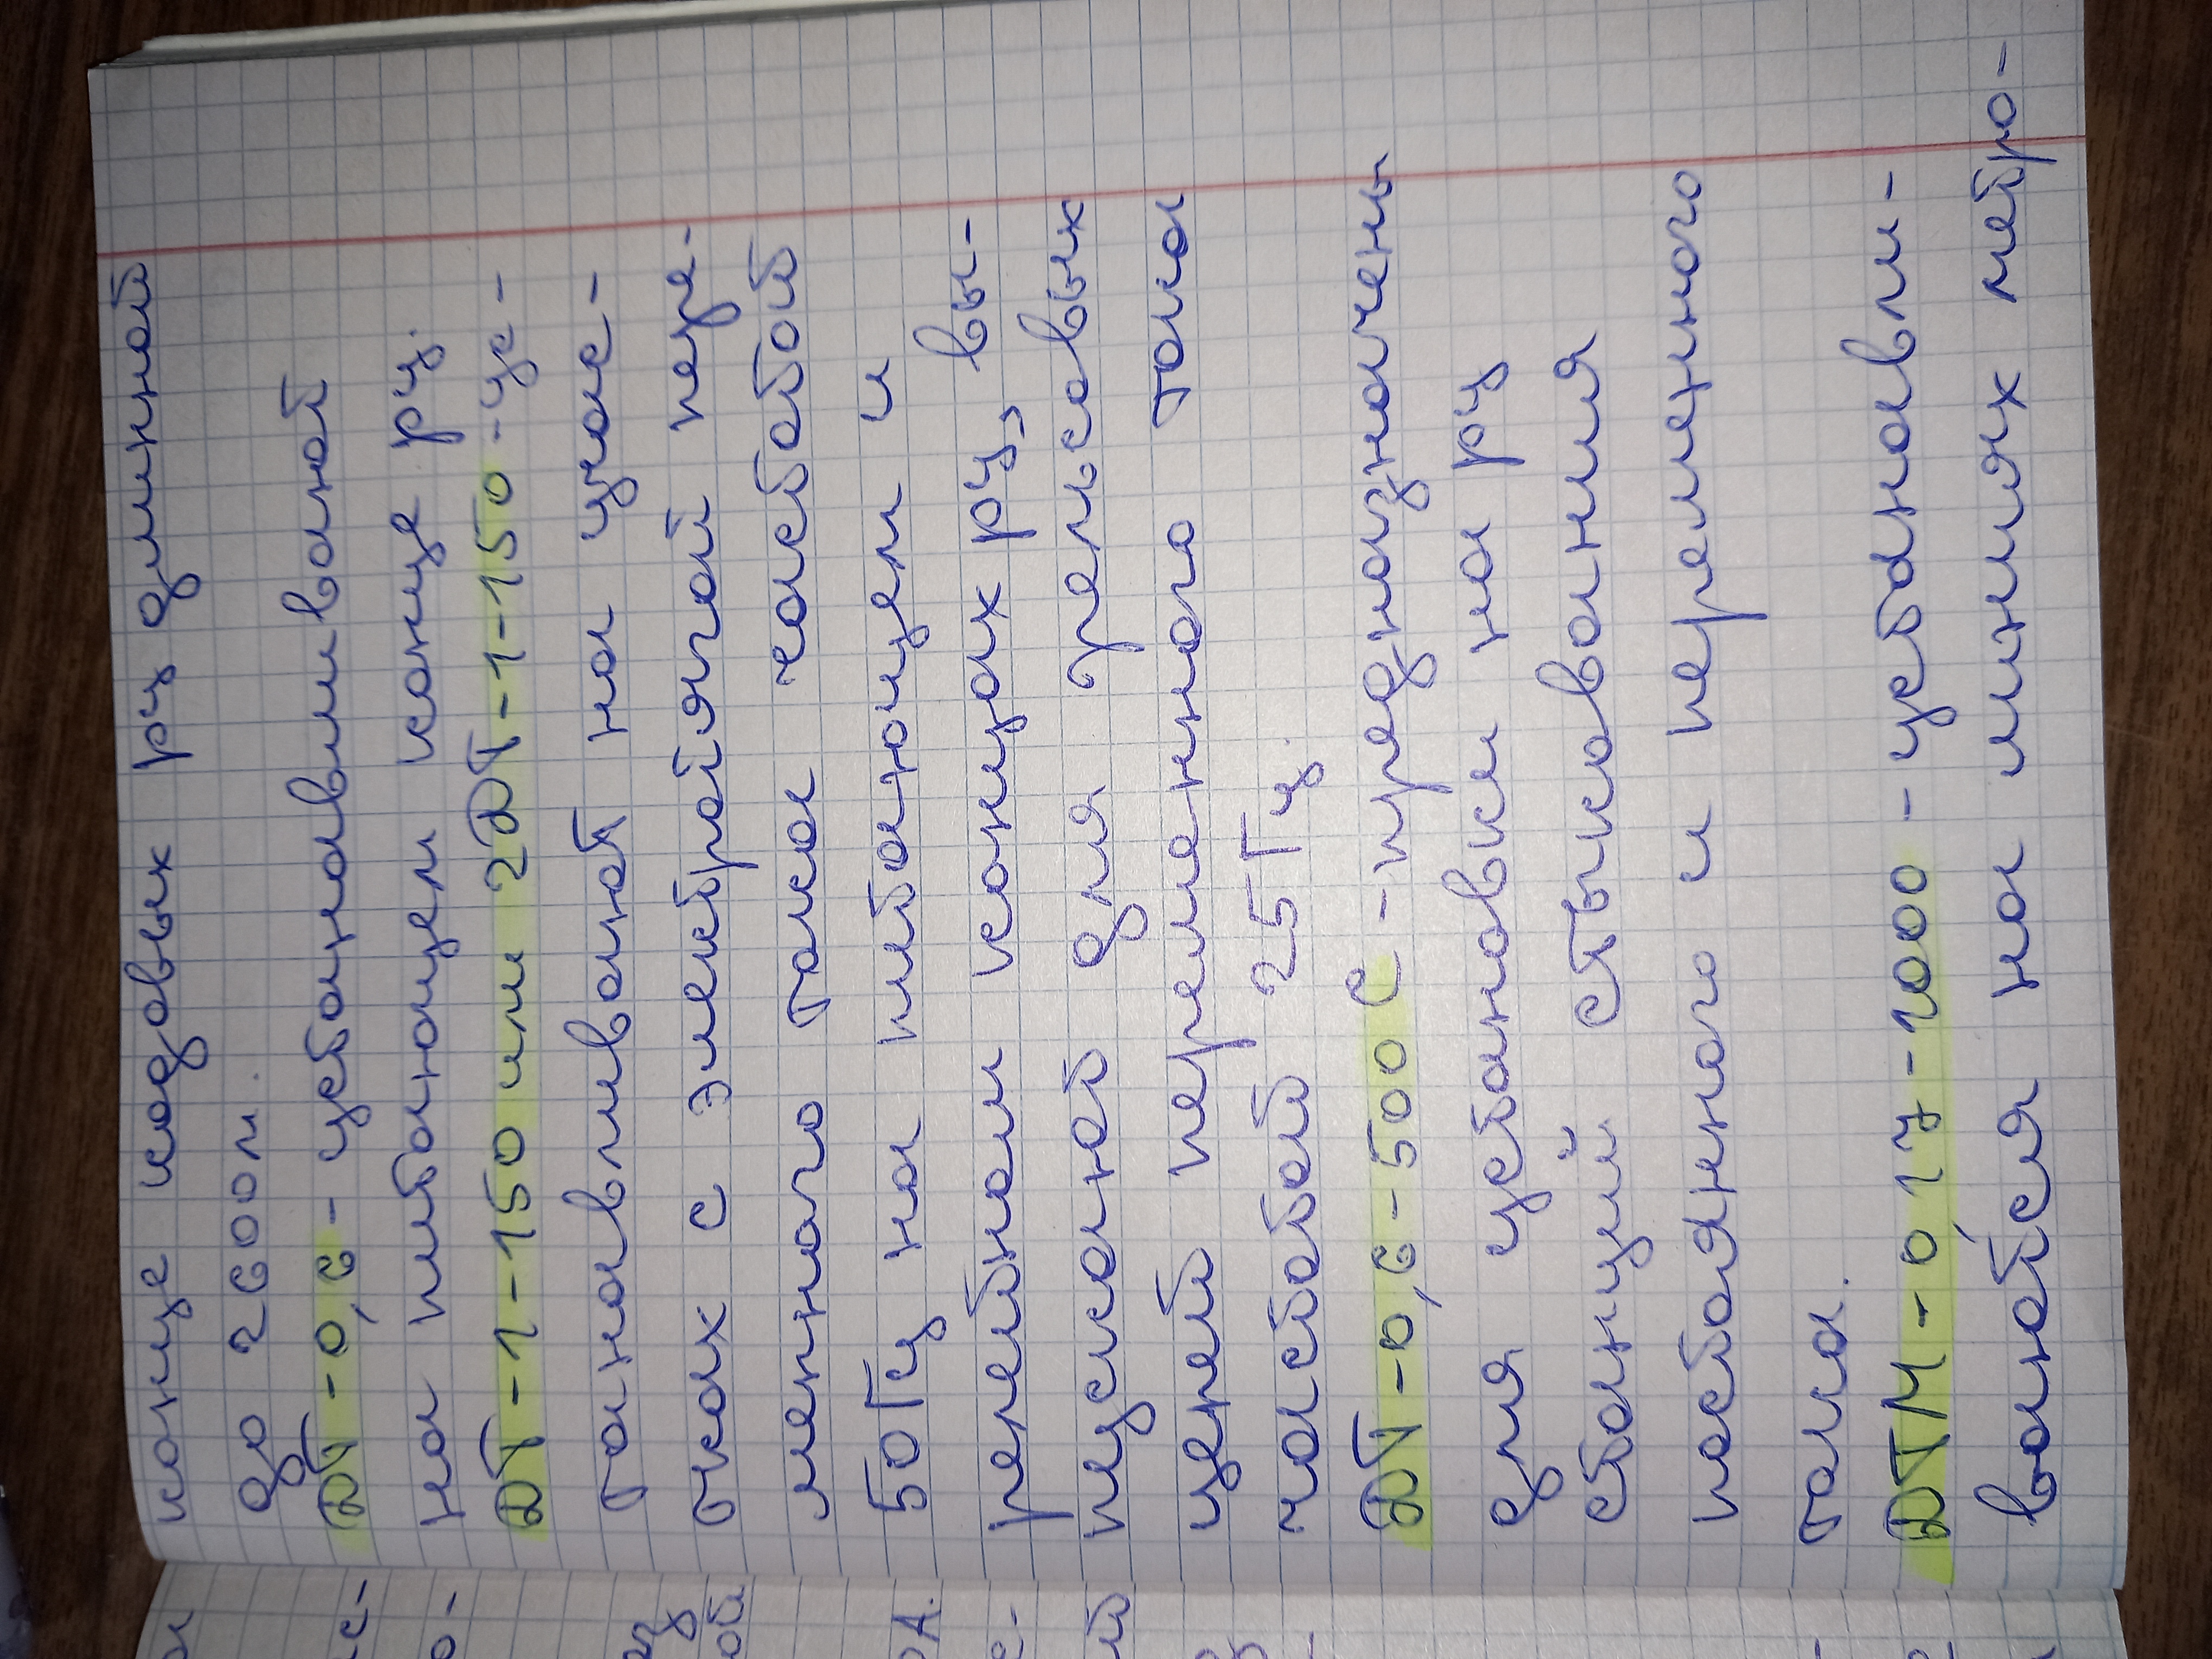 конце кодовых рц длинной
до 2600м.
ДТ-0,6 - устанавливают
на питающем конце рц.
ДТ-1-150 или 2ДТ-1-150 - ус-
танавливают на учас-
тках с электротягой пере-
менного тока частотой
50Гц на питающем и
релейном концах рц, вы-
пускают для рельсовых
цепей переменного тока
частотой 25Гц.
ДТ-0,6-500С - предназначены
для установки на рц
станций стыкования
постоянного и переменного
тока.
ДТМ-0,17-1000 - устанавли-
вается на линиях метро-